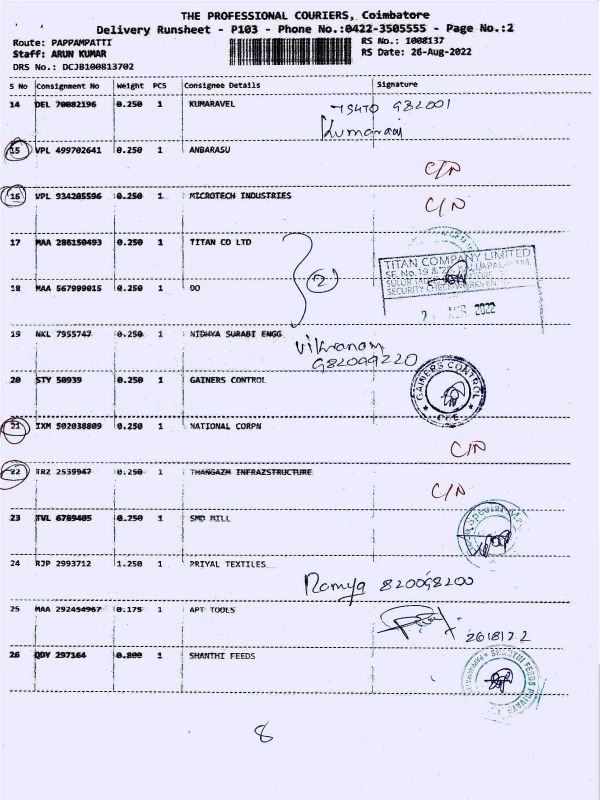 THE PROFESSIONAL COURIERS, Coimbatore
Delivery Runsheet - P103 - Phone No.:0422-3505555 - Page No.:2
Route: PAPPAMPATTI RS No.: 1008137
Staff: ARUN KUMAR RS Date: 26-Aug-2022
DRS No.: DCJB100813702
S No Consignment No Weight PCS Consignee Details Signature
14 DEL 70082196 0.250 1 KUMARAVEL
15 VPL 499702641 0.250 1 ANBARASU
C/N
16 VPL 934205596 0.250 1 MICROTECH INDUSTRIES C/N
17 MAA 286150493 0.250 1 TITAN CO LTD
TITAN COMPANY LIMITED
2
18 MAA 567999015 0.250 1 DO
2022
19 NKL 7955747 0.250 1 NIDHYA SURABI ENGG
20 STY 50939 0.250 1 GAINERS CONTROL GAINERS CONTROL
21 IXM 502038809 0.250 1 NATIONAL CORPN
C/N
22 TRZ 2539947 0.250 1 THANGAZM INFRAZSTRUCTURE
C/N
23 TVL 6789405 0.250 1 SMD MILL
24 RJP 2993712 1.250 1 PRIYAL TEXTILES
Ramya 820098200
25 MAA 292454967 0.175 1 APT TOOLS
26 QDY 297164 0.800 1 SHANTHI FEEDS
8